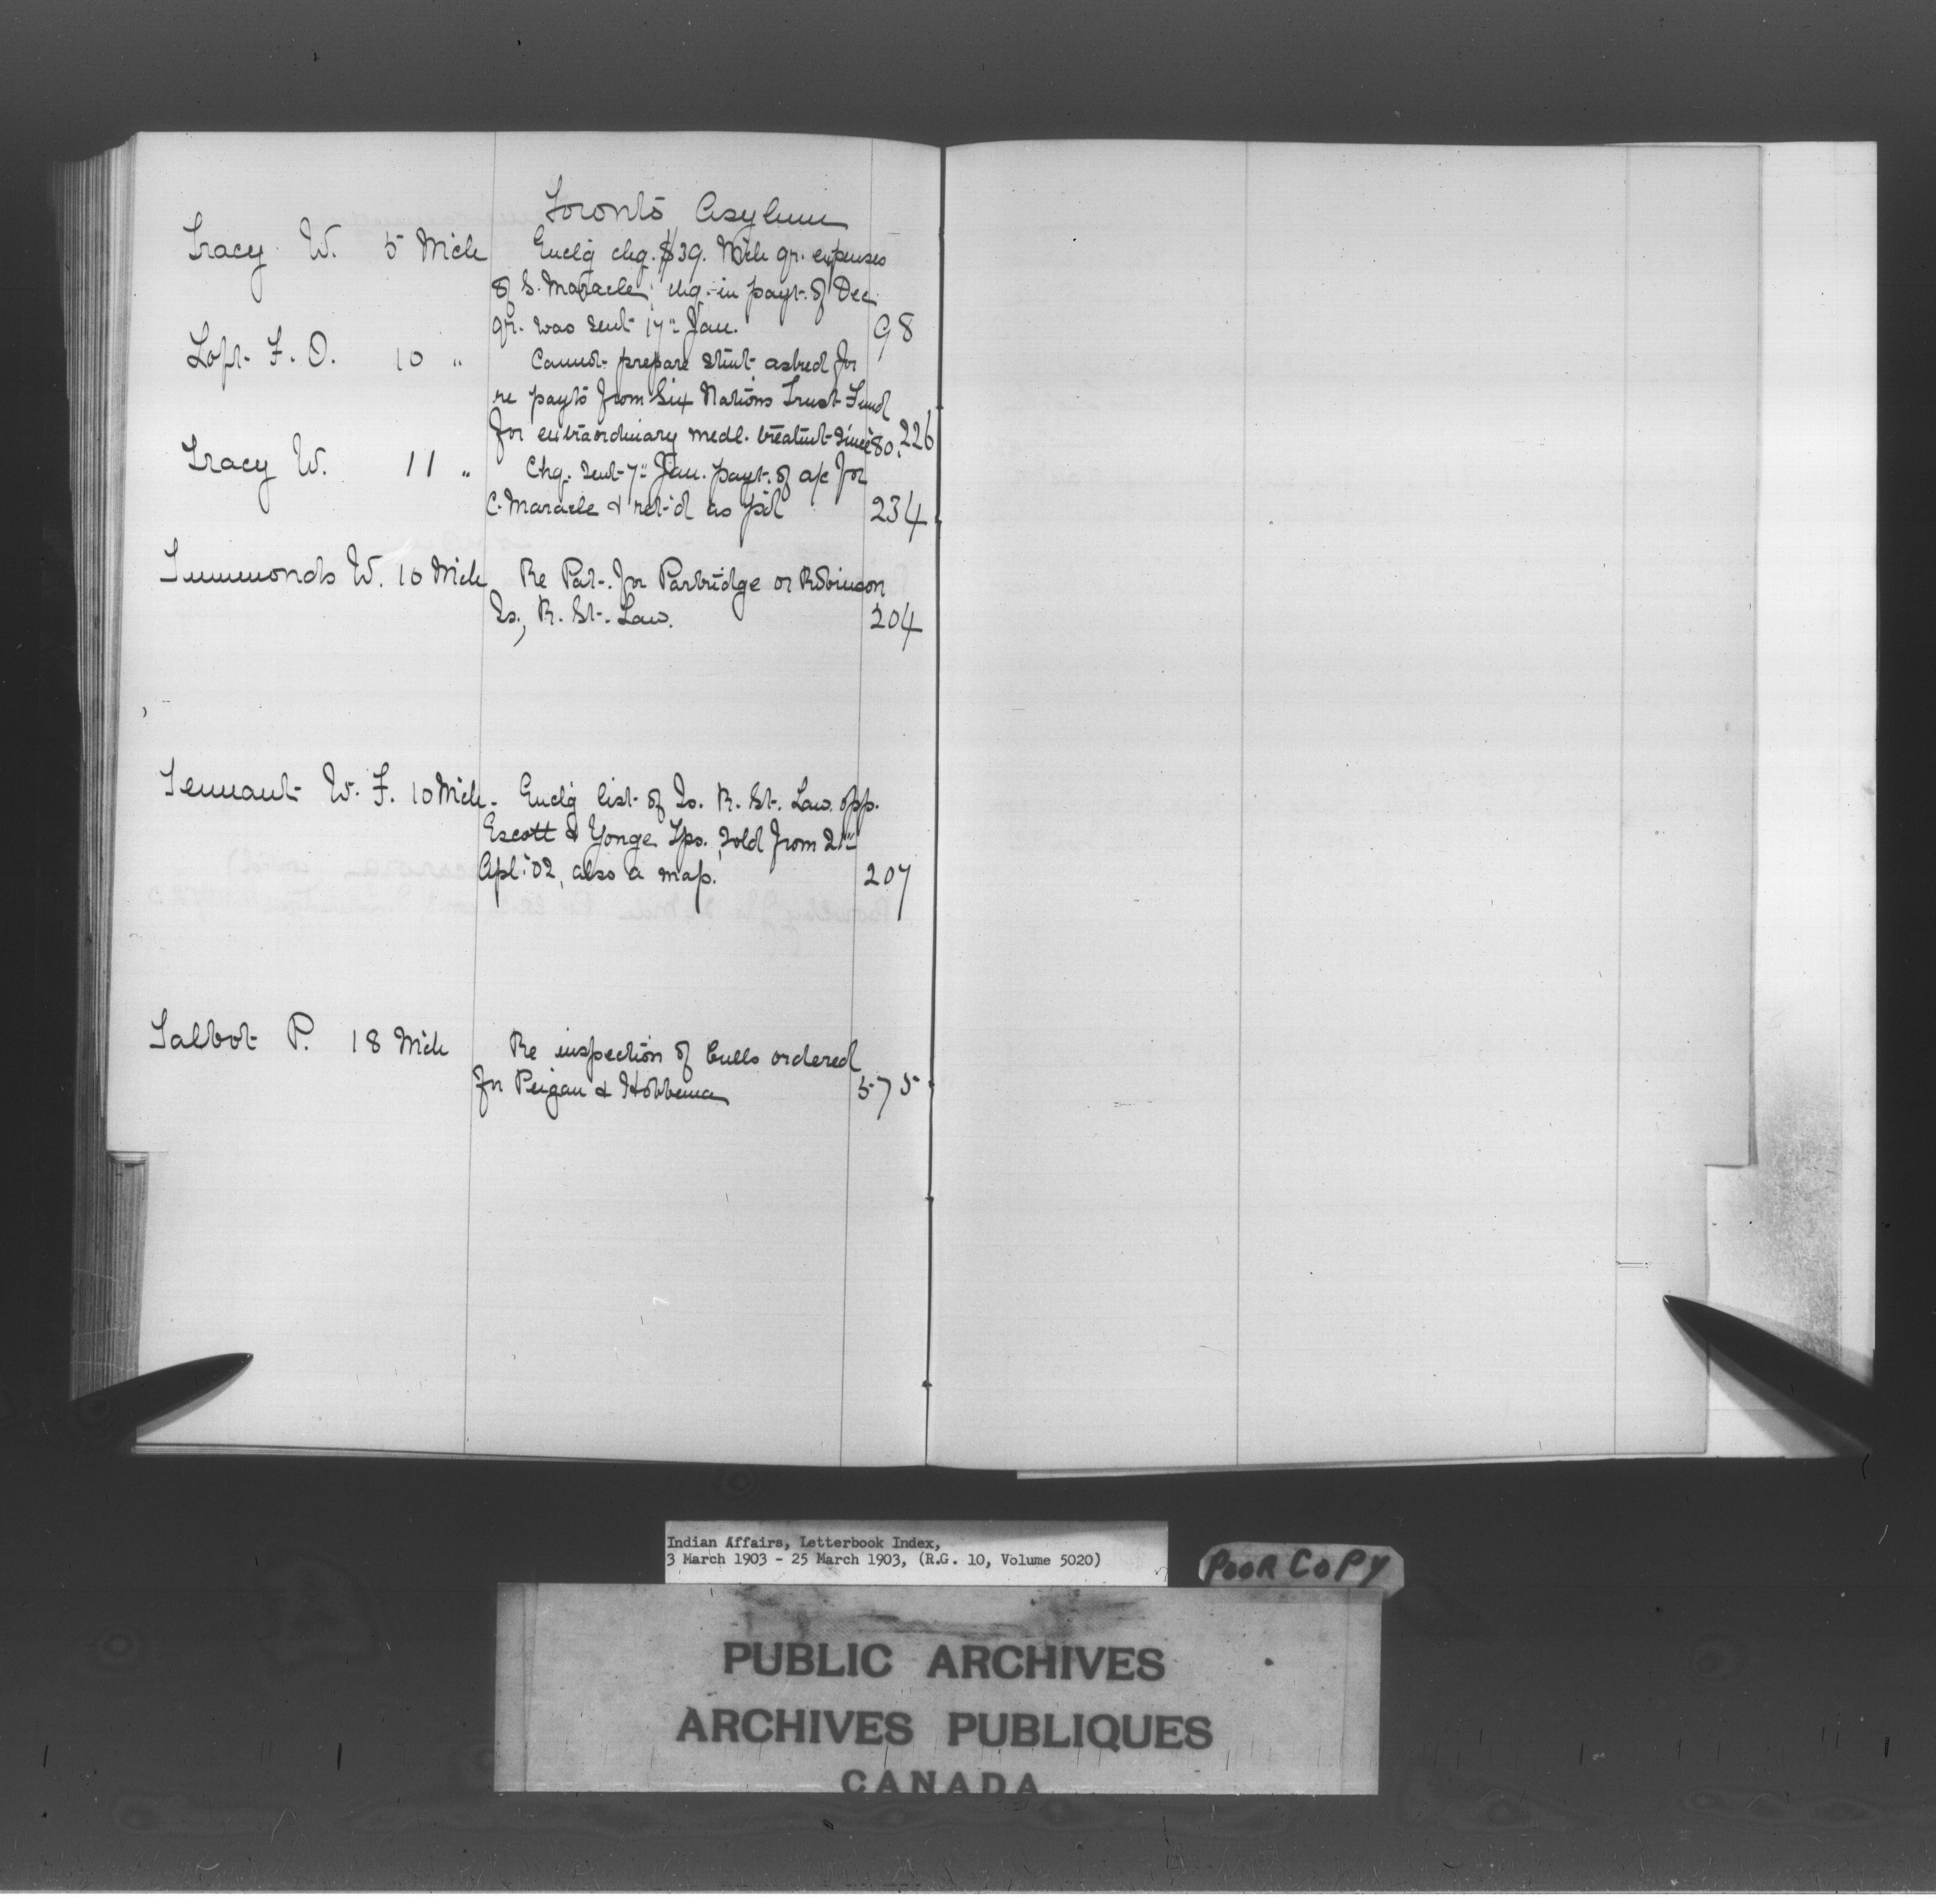 Toronto Asylum
Tracy W. 5 Mch Enclg chq. $39. Mch qr. expenses
of S. Maracle; chq. in payt. of Dec
qr. was sent 17" Jan. 98
Loft F. O. 10 " Cannot prepare stmt asked for
re payts from Six Nations Trust Fund
for extraordinary medl. treatmt since '80. 226
Tracy W. 11 " Chq. sent 7" Jan. payt. of a/c for
C. Maracle & ret'd as p'd 234
Timmonds W. 10 Mch Re Pat. for Partridge or Robinson
Is., R. St. Law. 204
Tennant W. F. 10 Mch. Enclg list of Is. R. St. Law. opp.
Escott & Yonge Tps. sold from 21"
Apl. '02, also a map. 207
Talbot P. 18 Mch Re inspection of bulls ordered
for Peigan & Hobbema 575
Indian Affairs, Letterbook Index,
3 March 1903 - 25 March 1903, (R.G. 10, Volume 5020)
POOR COPY
PUBLIC ARCHIVES
ARCHIVES PUBLIQUES
CANADA